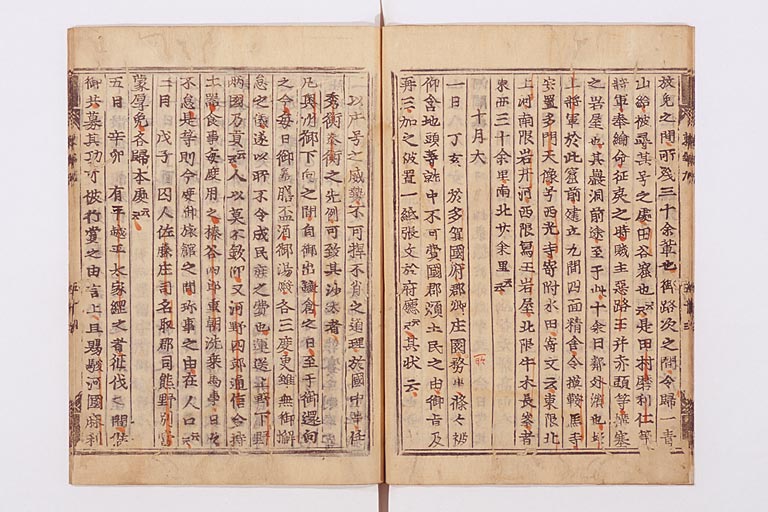 放免之間所残三十余輩也御路次之間令歸一青
山給被尋其号之處田谷窟也云々是田村麿利仁等
將軍奉綸命征夷之時賊主惡路王并赤頭等搆塞
之岩屋也其巖洞前途至于北十余日鄰外濱也坂
上將軍於此窟前建立九間四面精舎令摸鞍馬寺
安置多門天像号西光寺寄附水田寄文云東限北
上河南限岩井河西限 王岩屋北限牛木長峯者
東西三十余里南北廿余里云々
十月大
一日丁亥於多賀國府郡 庄園務 條々被
仰含地頭等就中不可費國郡煩土民之由御 及
再三加之被置一紙張文於府廳云々其狀云
以庄号之威勢不可押不肖之道理於國中 任
秀衡泰衡之先例可致其沙汰者
凡奥州御下向之間自御出鎌倉之日至于御還向
之今每日御羞膳盃酒御湯殿各三度更雖無御懈
怠之儀遂以所不令成民庶之費也運送上野下野
兩國乃貢云々人以莫不欽仰又河野四郎通信令持
土器食事每度用之榛谷四郎重朝洗乘馬事日々
不怠是等則今度御旅館之間珍事之由在人口云々
二月戊子囚人佐藤庄司名取郡司熊野別當
蒙厚免各歸本處云々
五日辛卯有平越 太家縂之者征伐之間候
御共募其功可被行賞之由言上且賜駿河國 利